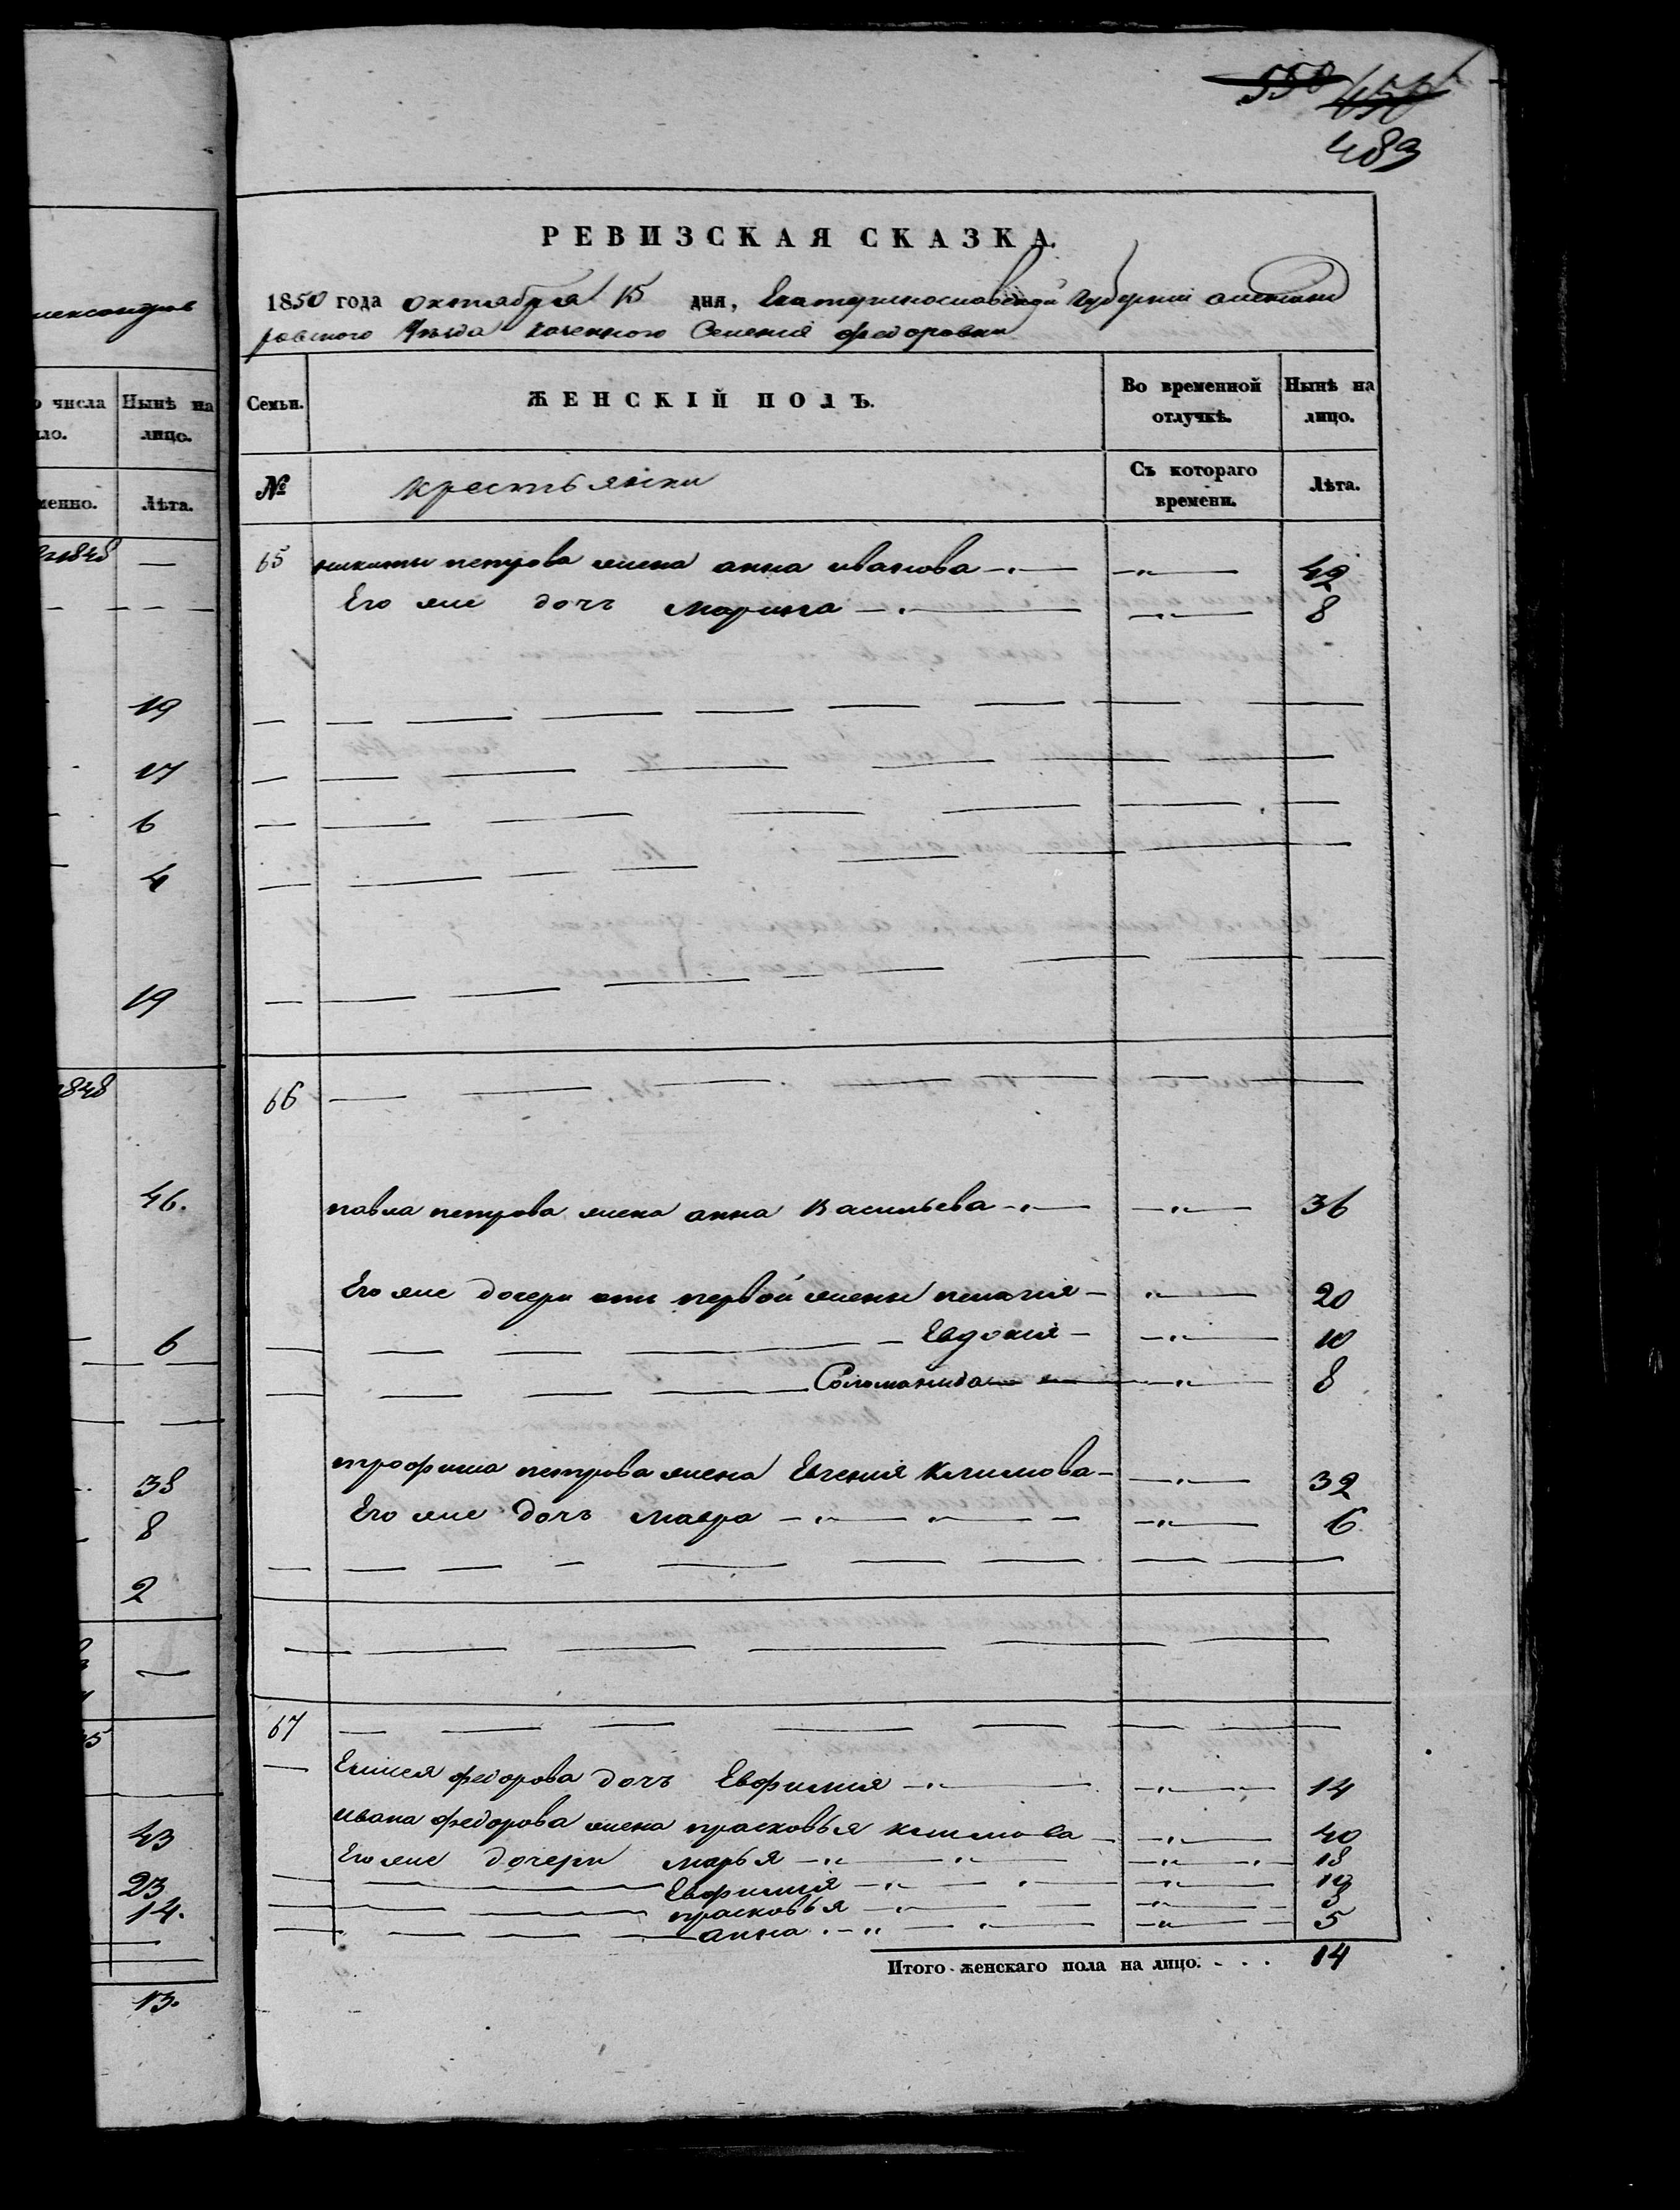 550 450
489
РЕВИЗСКАЯ СКАЗКА.
1850 года октября 15 дня, Екатеринославской Губернии александ
ровского Уезда казенного Селения федоровки
Семьи. ЖЕНСКІЙ ПОЛЪ. Во временной отлучкѣ. Нынѣ на лицо.
№ крестьянки Съ котораго времени. Лѣта.
65 никиты петрова жена анна иванова 42
Его же дочь марина 8
66
павла петрова жена анна Васильева 36
Его же дочери отъ первой жены пелагия 20
Евдокия 10
Соломанида 8
трофима петрова жена Евгения Климова 32
Его же дочь мавра 6
67
Елисея федорова дочь Евфимия 14
ивана федорова жена прасковья климова 40
Его же дочери марья 18
Евфимия
прасковья
анна 5
Итого женскаго пола на лицо. 14
александров
числа Нынѣ на
ло. лицо.
менно. Лѣта.
1848
19
17
6
4
19
1848
46.
6
38
8
2
43
23
14.
13.